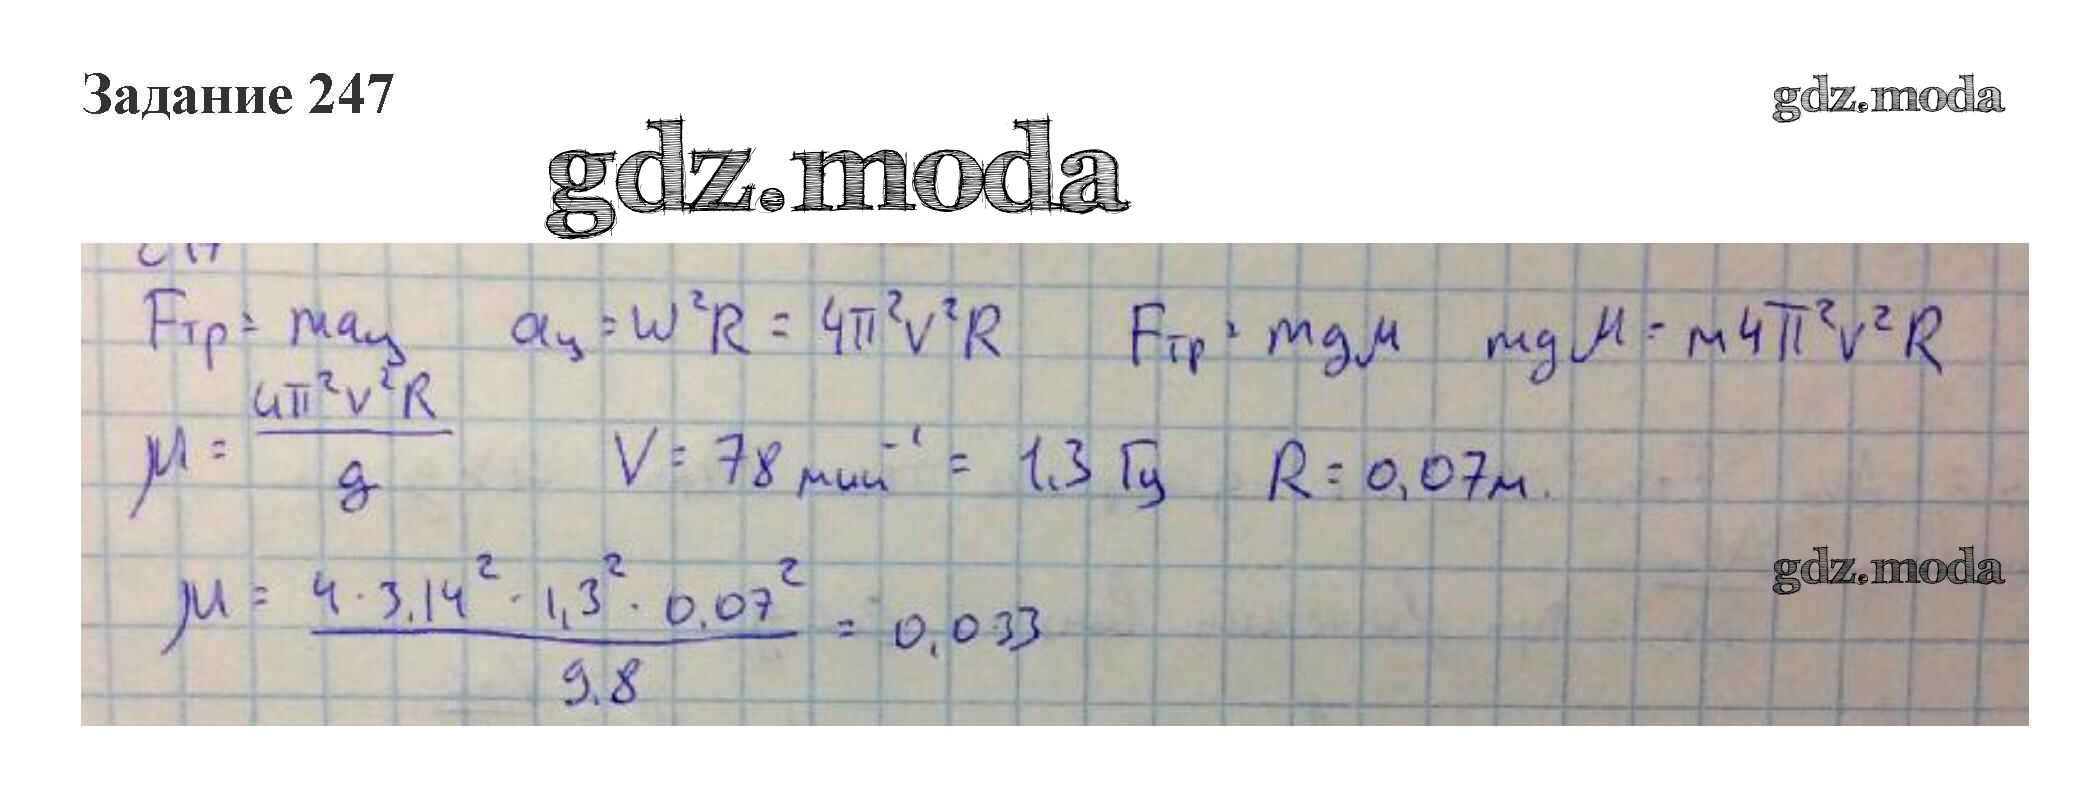 Задание 247
gdz.moda
gdz.moda
Fтр = maц aц = W²R = 4π²ν²R Fтр = mgμ mgμ = m4π²ν²R
μ = 4π²ν²R / g ν = 78 мин⁻¹ = 1,3 Гц R = 0,07м.
gdz.moda
μ = 4 · 3,14² · 1,3² · 0,07² / 9,8 = 0,033